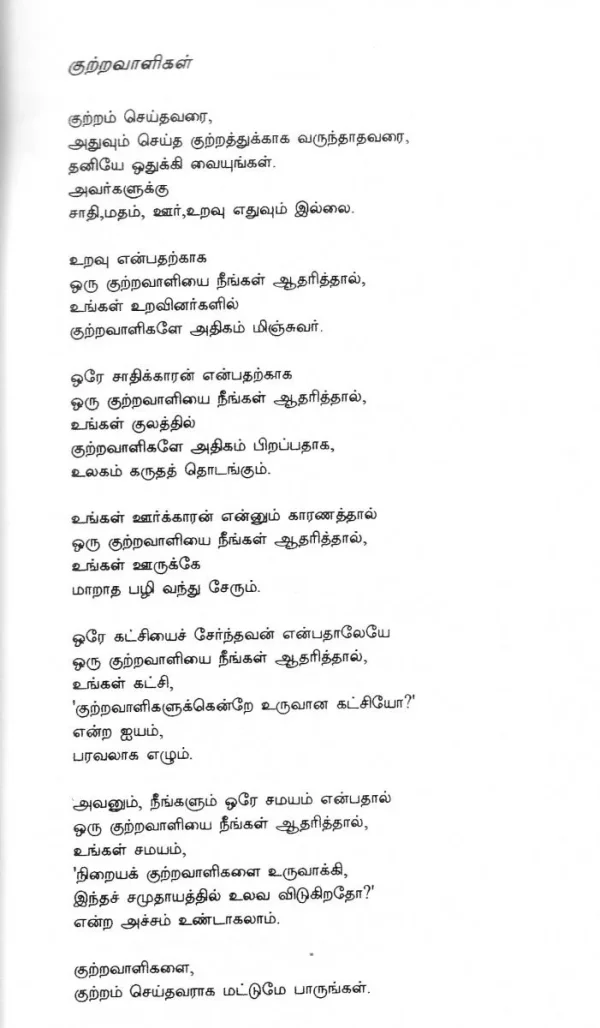 குற்றவாளிகள்
குற்றம் செய்தவரை,
அதுவும் செய்த குற்றத்துக்காக வருந்தாதவரை,
தனியே ஒதுக்கி வையுங்கள்.
அவர்களுக்கு
சாதி,மதம், ஊர்,உறவு எதுவும் இல்லை.
உறவு என்பதற்காக
ஒரு குற்றவாளியை நீங்கள் ஆதரித்தால்,
உங்கள் உறவினர்களில்
குற்றவாளிகளே அதிகம் மிஞ்சுவர்.
ஒரே சாதிக்காரன் என்பதற்காக
ஒரு குற்றவாளியை நீங்கள் ஆதரித்தால்,
உங்கள் குலத்தில்
குற்றவாளிகளே அதிகம் பிறப்பதாக,
உலகம் கருதத் தொடங்கும்.
உங்கள் ஊர்க்காரன் என்னும் காரணத்தால்
ஒரு குற்றவாளியை நீங்கள் ஆதரித்தால்,
உங்கள் ஊருக்கே
மாறாத பழி வந்து சேரும்.
ஒரே கட்சியைச் சேர்ந்தவன் என்பதாலேயே
ஒரு குற்றவாளியை நீங்கள் ஆதரித்தால்,
உங்கள் கட்சி,
'குற்றவாளிகளுக்கென்றே உருவான கட்சியோ?'
என்ற ஐயம்,
பரவலாக எழும்.
அவனும், நீங்களும் ஒரே சமயம் என்பதால்
ஒரு குற்றவாளியை நீங்கள் ஆதரித்தால்,
உங்கள் சமயம்,
'நிறையக் குற்றவாளிகளை உருவாக்கி,
இந்தச் சமுதாயத்தில் உலவ விடுகிறதோ?'
என்ற அச்சம் உண்டாகலாம்.
குற்றவாளிகளை,
குற்றம் செய்தவராக மட்டுமே பாருங்கள்.